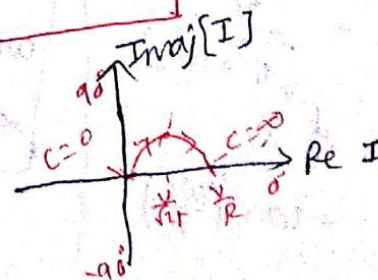 Imaj[I]
90°
C=0
C=∞
Re I
V/R
0°
-90°